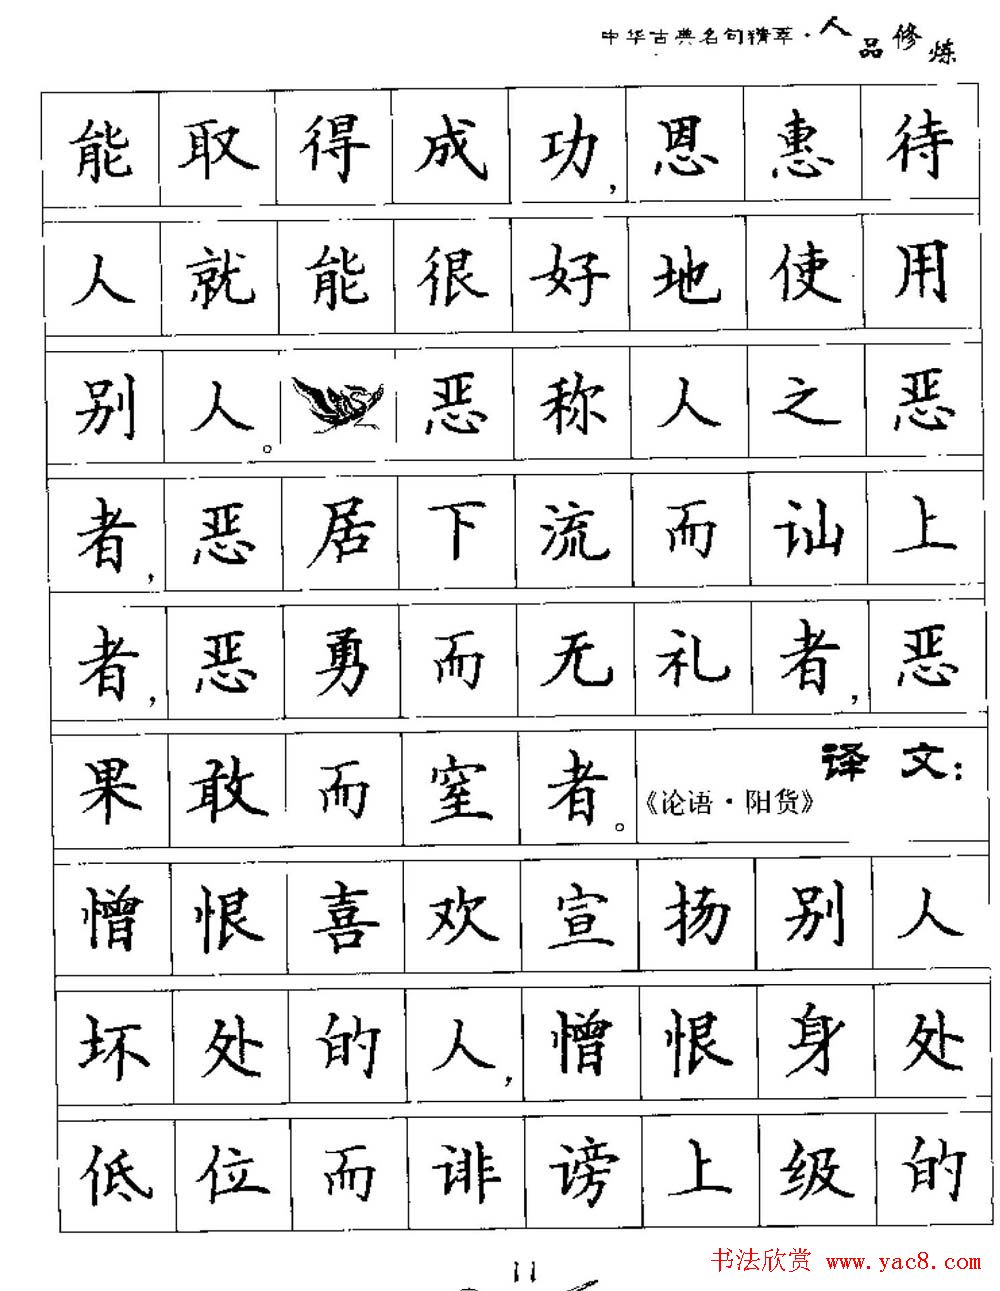 中华古典名句精萃·人品修炼
能取得成功,恩惠待
人就能很好地使用
别人。恶称人之恶
者,恶居下流而讪上
者,恶勇而无礼者,恶
果敢而窒者。《论语·阳货》译文:
憎恨喜欢宣扬别人
坏处的人,憎恨身处
低位而诽谤上级的
11
书法欣赏 www.yac8.com